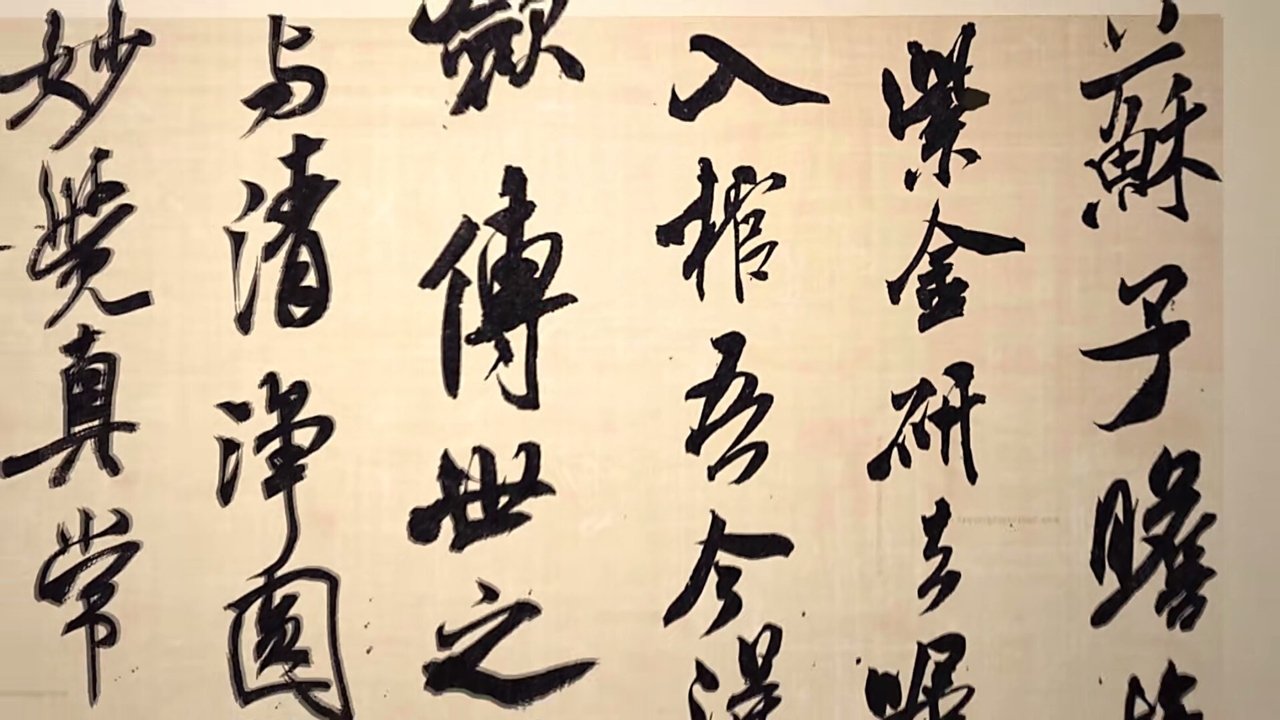 蘇子瞻
紫金研去嘱
入棺吾今得
斂傳世之
与清淨圓
妙覺真常